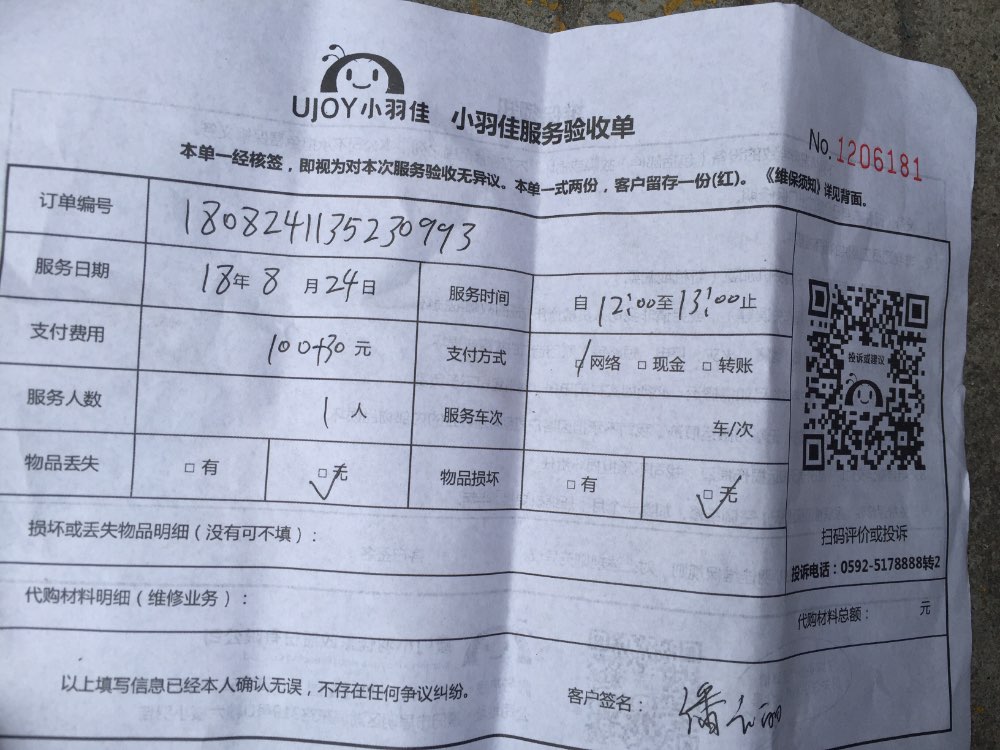 UJOY小羽佳 小羽佳服务验收单
No. 1206181
本单一经核签，即视为对本次服务验收无异议。本单一式两份，客户留存一份(红)。《维保须知》详见背面。
订单编号 180824113523​0993
服务日期 18年 8 月 24日 服务时间 自 12:00至 13:00止
支付费用 100+30 元 支付方式 □网络 □现金 □转账
服务人数 1 人 服务车次 车/次
物品丢失 □有 □无 物品损坏 □有 □无
投诉或建议
扫码评价或投诉
投诉电话：0592-5178888转2
损坏或丢失物品明细（没有可不填）：
代购材料明细（维修业务）： 代购材料总额： 元
以上填写信息已经本人确认无误，不存在任何争议纠纷。 客户签名：